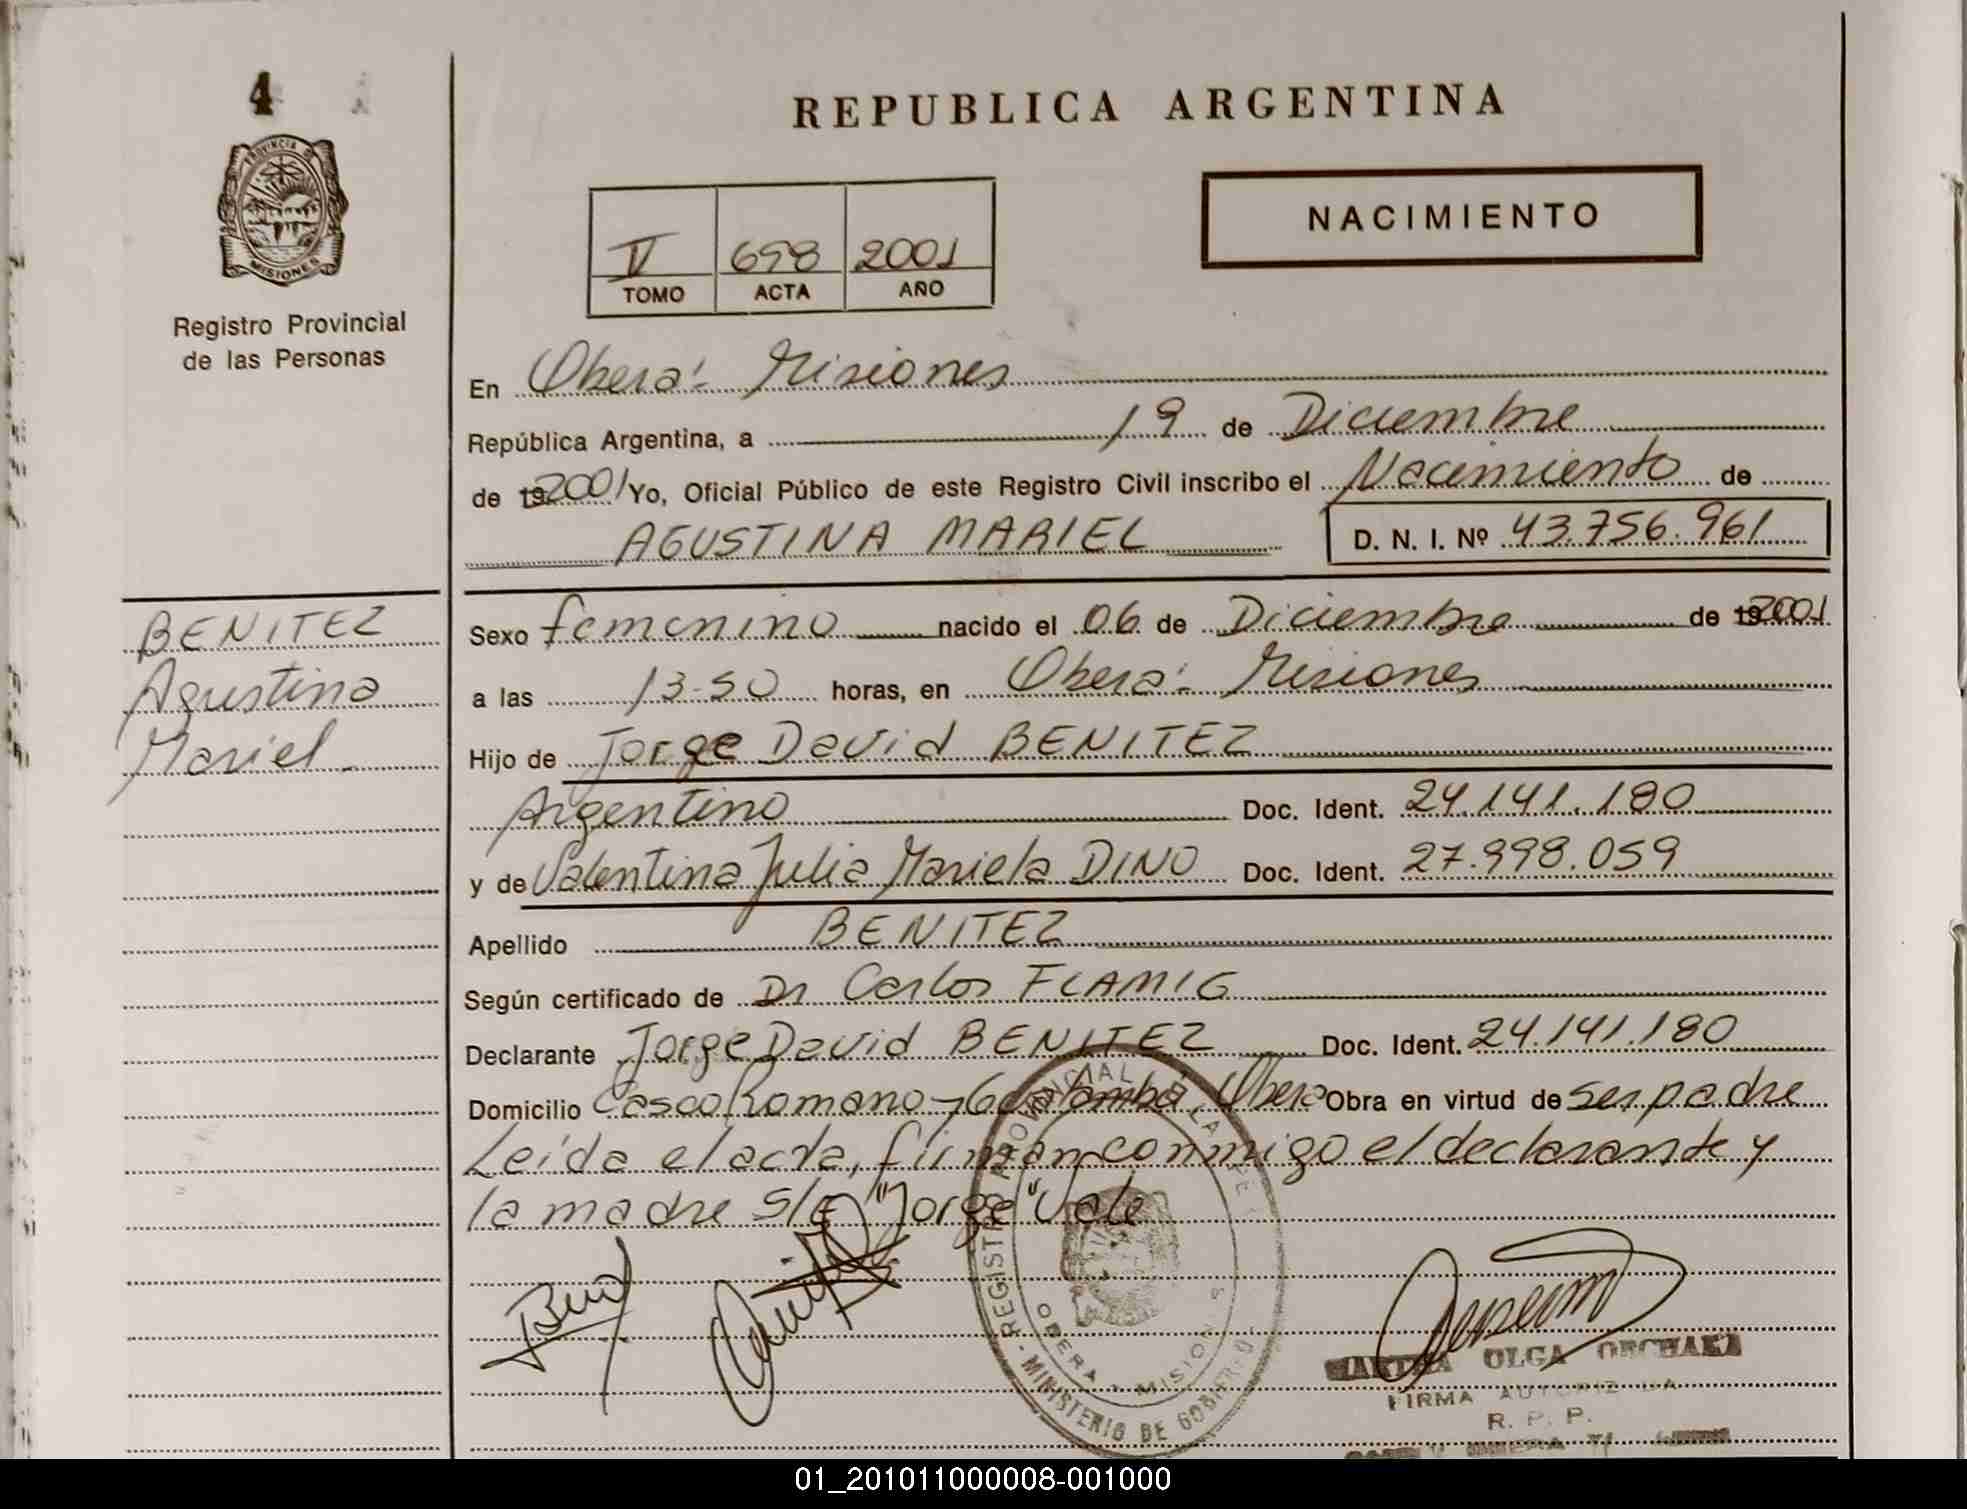 4
PROVINCIA DE
MISIONES
Registro Provincial
de las Personas
REPUBLICA ARGENTINA
NACIMIENTO
V 698 2001
TOMO ACTA AÑO
En Oberá - Misiones
República Argentina, a 19 de Diciembre
de 19 2001 Yo, Oficial Público de este Registro Civil inscribo el Nacimiento de
AGUSTINA MARIEL D. N. I. Nº 43.756.961
BENITEZ
Agustina
Mariel
Sexo femenino nacido el 06 de Diciembre de 19 2001
a las 13-50 horas, en Oberá - Misiones
Hijo de Jorge David BENITEZ
Argentino Doc. Ident. 24.141.180
y de Valentina Julia Mariela DINO Doc. Ident. 27.998.059
Apellido BENITEZ
Según certificado de Dr Carlos FLAMIG
Declarante Jorge David BENITEZ Doc. Ident. 24.141.180
Domicilio Casco Romano y Guatambú Oberá Obra en virtud de ser padre
Leída el acta, firman conmigo el declarante y
la madre S/E "Jorge" Vale
REGISTRO PROVINCIAL DE LA
OBERA - MISIONES
MINISTERIO DE GOBIERNO
MARTHA OLGA
FIRMA AUTORIZADA
R. P. P.
01_201011000008-001000